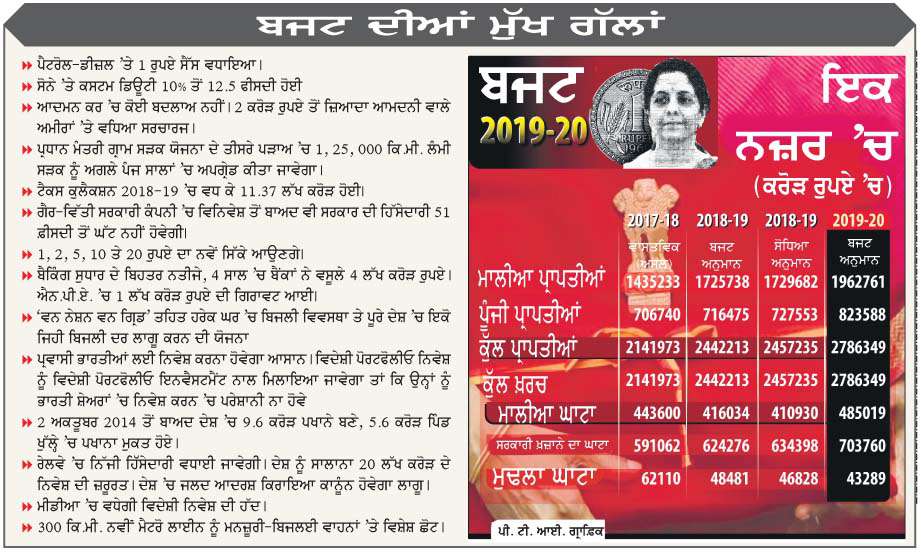 ਬਜਟ ਦੀਆਂ ਮੁੱਖ ਗੱਲਾਂ
ਪੈਟਰੋਲ-ਡੀਜ਼ਲ 'ਤੇ 1 ਰੁਪਏ ਸੈੱਸ ਵਧਾਇਆ।
ਸੋਨੇ 'ਤੇ ਕਸਟਮ ਡਿਊਟੀ 10% ਤੋਂ 12.5 ਫੀਸਦੀ ਹੋਈ
ਆਦਮਨ ਕਰ 'ਚ ਕੋਈ ਬਦਲਾਅ ਨਹੀਂ। 2 ਕਰੋੜ ਰੁਪਏ ਤੋਂ ਜ਼ਿਆਦਾ ਆਮਦਨੀ ਵਾਲੇ
ਅਮੀਰਾਂ 'ਤੇ ਵਧਿਆ ਸਰਚਾਰਜ।
ਪ੍ਰਧਾਨ ਮੰਤਰੀ ਗ੍ਰਾਮ ਸੜਕ ਯੋਜਨਾ ਦੇ ਤੀਸਰੇ ਪੜਾਅ 'ਚ 1, 25, 000 ਕਿ.ਮੀ. ਲੰਮੀ
ਸੜਕ ਨੂੰ ਅਗਲੇ ਪੰਜ ਸਾਲਾਂ 'ਚ ਅਪਗ੍ਰੇਡ ਕੀਤਾ ਜਾਵੇਗਾ।
ਟੈਕਸ ਕੁਲੈਕਸ਼ਨ 2018-19 'ਚ ਵਧ ਕੇ 11.37 ਲੱਖ ਕਰੋੜ ਹੋਈ।
ਗੈਰ-ਵਿੱਤੀ ਸਰਕਾਰੀ ਕੰਪਨੀ 'ਚ ਵਿਨਿਵੇਸ਼ ਤੋਂ ਬਾਅਦ ਵੀ ਸਰਕਾਰ ਦੀ ਹਿੱਸੇਦਾਰੀ 51
ਫ਼ੀਸਦੀ ਤੋਂ ਘੱਟ ਨਹੀਂ ਹੋਵੇਗੀ।
1, 2, 5, 10 ਤੇ 20 ਰੁਪਏ ਦਾ ਨਵੇਂ ਸਿੱਕੇ ਆਉਣਗੇ।
ਬੈਕਿੰਗ ਸੁਧਾਰ ਦੇ ਬਿਹਤਰ ਨਤੀਜੇ, 4 ਸਾਲ 'ਚ ਬੈਂਕਾਂ ਨੇ ਵਸੂਲੇ 4 ਲੱਖ ਕਰੋੜ ਰੁਪਏ।
ਐਨ.ਪੀ.ਏ. 'ਚ 1 ਲੱਖ ਕਰੋੜ ਰੁਪਏ ਦੀ ਗਿਰਾਵਟ ਆਈ।
'ਵਨ ਨੇਸ਼ਨ ਵਨ ਗਿ੍ਡ' ਤਹਿਤ ਹਰੇਕ ਘਰ 'ਚ ਬਿਜਲੀ ਵਿਵਸਥਾ ਤੇ ਪੂਰੇ ਦੇਸ਼ 'ਚ ਇਕੋ
ਜਿਹੀ ਬਿਜਲੀ ਦਰ ਲਾਗੂ ਕਰਨ ਦੀ ਯੋਜਨਾ
ਪ੍ਰਵਾਸੀ ਭਾਰਤੀਆਂ ਲਈ ਨਿਵੇਸ਼ ਕਰਨਾ ਹੋਵੇਗਾ ਆਸਾਨ। ਵਿਦੇਸ਼ੀ ਪੋਰਟਫੋਲੀਓ ਨਿਵੇਸ਼
ਨੂੰ ਵਿਦੇਸ਼ੀ ਪੋਰਟਫੋਲੀਓ ਇਨਵੈਸਟਮੈਂਟ ਨਾਲ ਮਿਲਾਇਆ ਜਾਵੇਗਾ ਤਾਂ ਕਿ ਉਨ੍ਹਾਂ ਨੂੰ
ਭਾਰਤੀ ਸ਼ੇਅਰਾਂ 'ਚ ਨਿਵੇਸ਼ ਕਰਨ 'ਚ ਪਰੇਸ਼ਾਨੀ ਨਾ ਹੋਵੇ
2 ਅਕਤੂਬਰ 2014 ਤੋਂ ਬਾਅਦ ਦੇਸ਼ 'ਚ 9.6 ਕਰੋੜ ਪਖਾਨੇ ਬਣੇ, 5.6 ਕਰੋੜ ਪਿੰਡ
ਖੁੱਲ੍ਹੇ 'ਚ ਪਖਾਨਾ ਮੁਕਤ ਹੋਏ।
ਰੇਲਵੇ 'ਚ ਨਿੱਜੀ ਹਿੱਸੇਦਾਰੀ ਵਧਾਈ ਜਾਵੇਗੀ। ਦੇਸ਼ ਨੂੰ ਸਾਲਾਨਾ 20 ਲੱਖ ਕਰੋੜ ਦੇ
ਨਿਵੇਸ਼ ਦੀ ਜ਼ਰੂਰਤ। ਦੇਸ਼ 'ਚ ਜਲਦ ਆਦਰਸ਼ ਕਿਰਾਇਆ ਕਾਨੂੰਨ ਹੋਵੇਗਾ ਲਾਗੂ।
ਮੀਡੀਆ 'ਚ ਵਧੇਗੀ ਵਿਦੇਸ਼ੀ ਨਿਵੇਸ਼ ਦੀ ਹੱਦ।
300 ਕਿ.ਮੀ. ਨਵੀਂ ਮੈਟਰੋ ਲਾਈਨ ਨੂੰ ਮਨਜ਼ੂਰੀ-ਬਿਜਲਈ ਵਾਹਨਾਂ 'ਤੇ ਵਿਸ਼ੇਸ਼ ਛੋਟ।
ਬਜਟ
2019-20
ਇਕ
ਨਜ਼ਰ 'ਚ
(ਕਰੋੜ ਰੁਪਏ 'ਚ)
2017-18 2018-19 2018-19 2019-20
ਵਾਸਤਵਿਕ ਬਜਟ ਸੋਧਿਆ ਬਜਟ
(ਅਸਲ) ਅਨੁਮਾਨ ਅਨੁਮਾਨ ਅਨੁਮਾਨ
ਮਾਲੀਆ ਪ੍ਰਾਪਤੀਆਂ 1435233 1725738 1729682 1962761
ਪੂੰਜੀ ਪ੍ਰਾਪਤੀਆਂ 706740 716475 727553 823588
ਕੁੱਲ ਪ੍ਰਾਪਤੀਆਂ 2141973 2442213 2457235 2786349
ਕੁੱਲ ਖ਼ਰਚ 2141973 2442213 2457235 2786349
ਮਾਲੀਆ ਘਾਟਾ 443600 416034 410930 485019
ਸਰਕਾਰੀ ਖ਼ਜ਼ਾਨੇ ਦਾ ਘਾਟਾ 591062 624276 634398 703760
ਮੁਢਲਾ ਘਾਟਾ 62110 48481 46828 43289
ਪੀ. ਟੀ. ਆਈ. ਗ੍ਰਾਫ਼ਿਕ